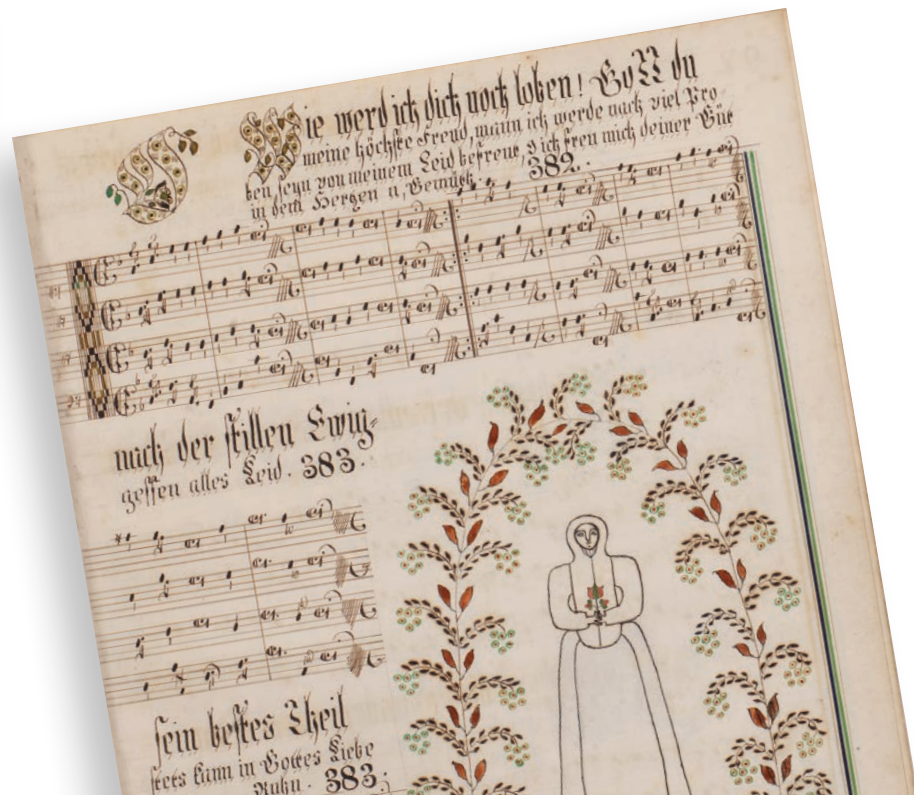 Wie werd ich dich noch loben! GoTT du
meine höchste Freud, wann ich werde nach viel Pro
ben seyn von meinem Leid befreyt, ich freu mich deiner Güt
in dem Hertzen u, Gemüth. 382.
nach der stillen Ewig-
gessen alles Leid. 383.
sein bestes Theil
stets kann in Gottes Liebe
Ruhn. 383.